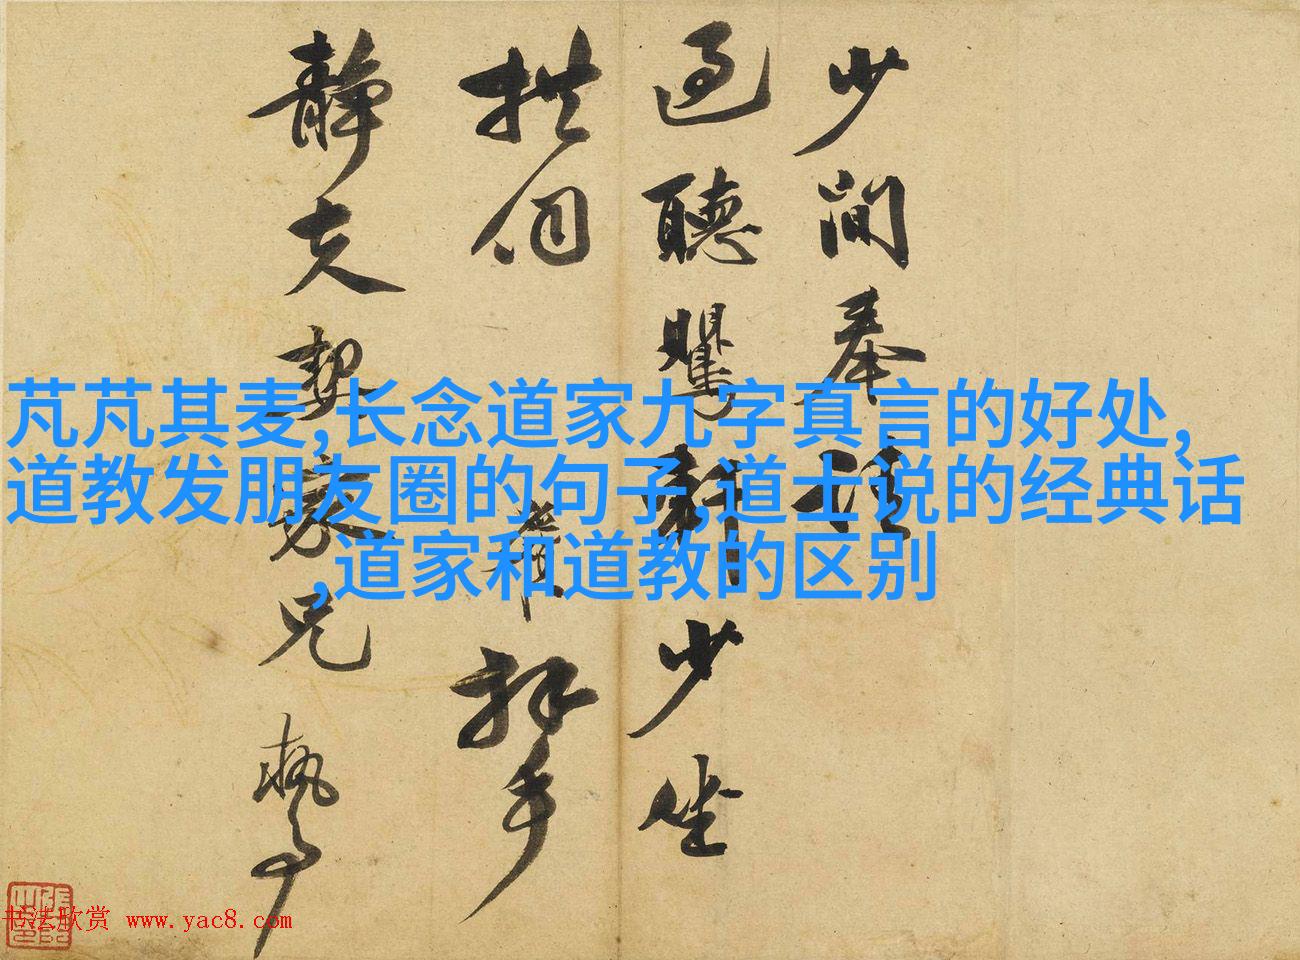 少間奉請
過聽鸎軒少坐
拱伺
拜手
靜夫契家兄執事
芃芃其麦,长念道家九字真言的好处,
道教发朋友圈的句子,道士说的经典话
,道家和道教的区别
书法欣赏 www.yac8.com